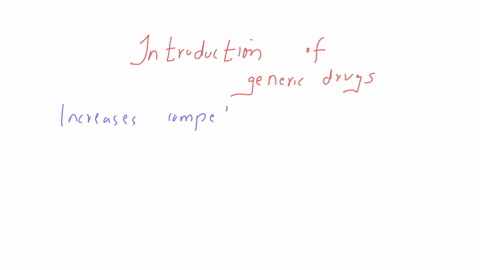 Introduction of
generic drugs
Increases compe